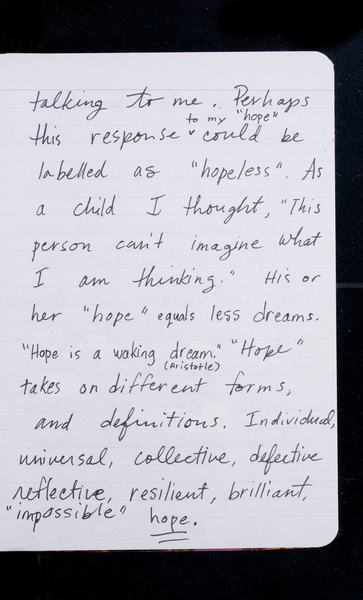 talking to me. Perhaps
to my "hope"
this response ˅ could be
labelled as "hopeless". As
a child I thought, "This
person can't imagine what
I am thinking." His or
her "hope" equals less dreams.
"Hope is a waking dream." "Hope"
(Aristotle)
takes on different forms,
and definitions. Individual,
universal, collective, defective
reflective, resilient, brilliant,
"impossible" hope.